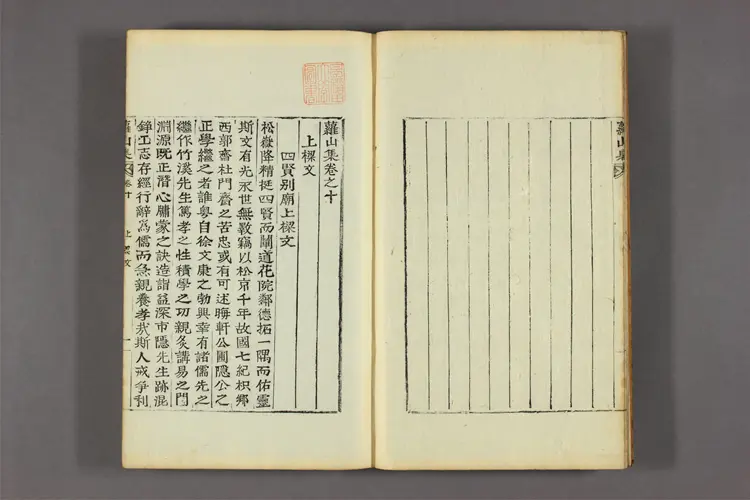 蘿山集
蘿山集卷之十
上樑文
四賢別廟上樑文
松嶽降精挺四賢而闡道花院鄰德拓一隅而佑靈
斯文有光永世無斁竊以松京千年故國七紀枳鄉
西郭齋杜門齋之苦忠或有可述晦軒公圃隱公之
正學繼之者誰粤自徐文康之勃興幸有諸儒先之
繼作竹溪先生篤孝之性積學之功親灸講易之門
淵源旣正潛心牖蒙之訣造詣益深市隱先生跡混
錚工志存經行辭爲儒而急親養孝哉斯人戒爭利
蘿山集 卷十 上樑文 一